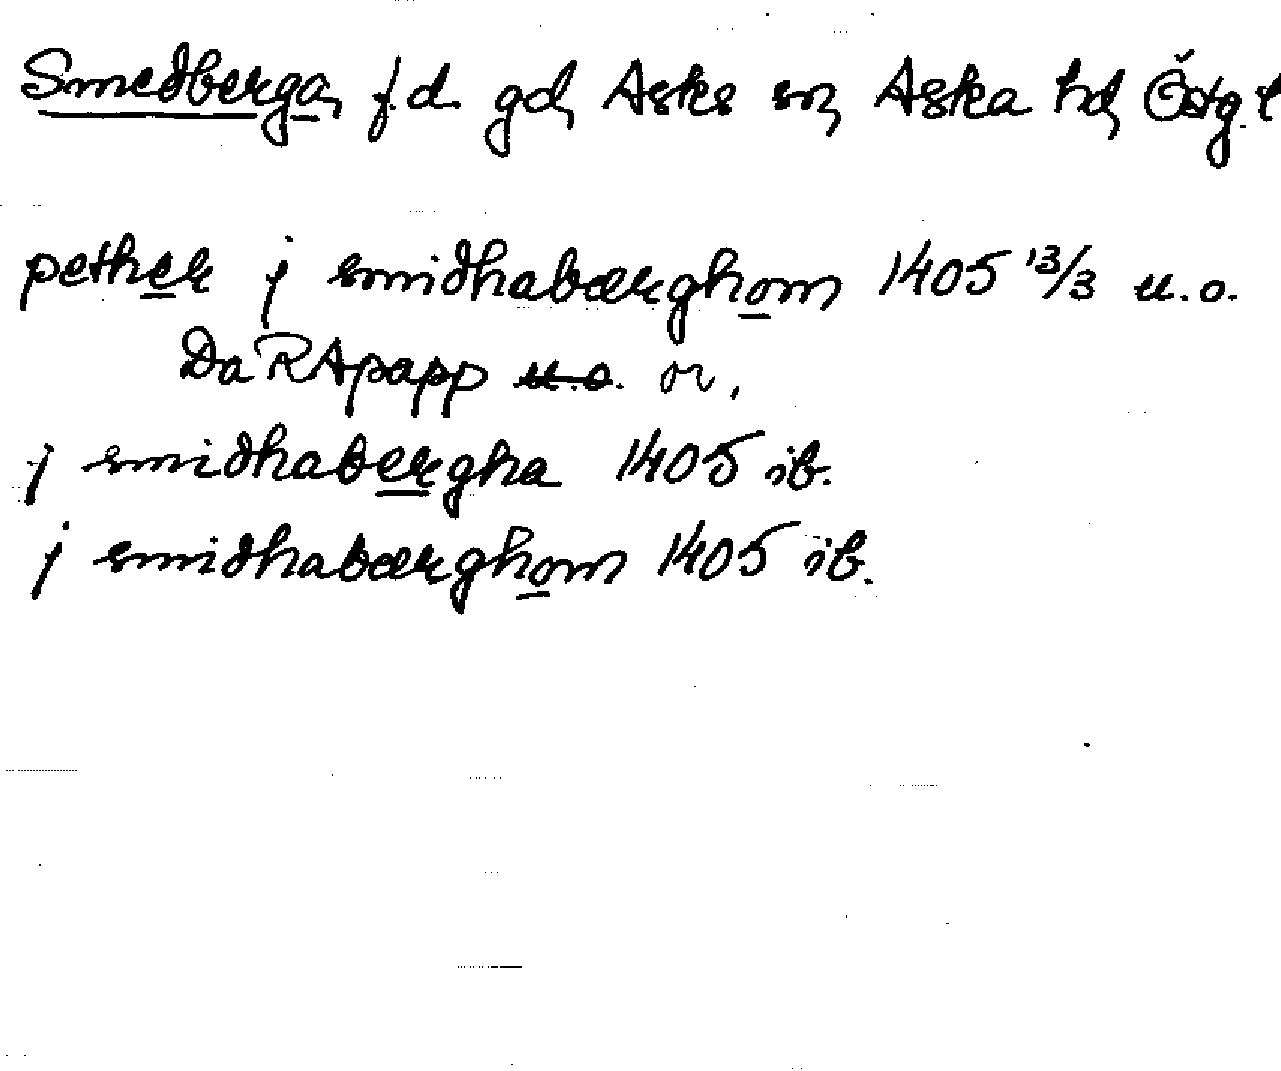 Smedberga, f.d. gd, Asks sn, Aska hd, Östg. l
pether j smidhabærghom 1405 13/3 u.o.
Da RApapp u.o. or,
j smidhabergha 1405 ib.
j smidhabærghom 1405 ib.